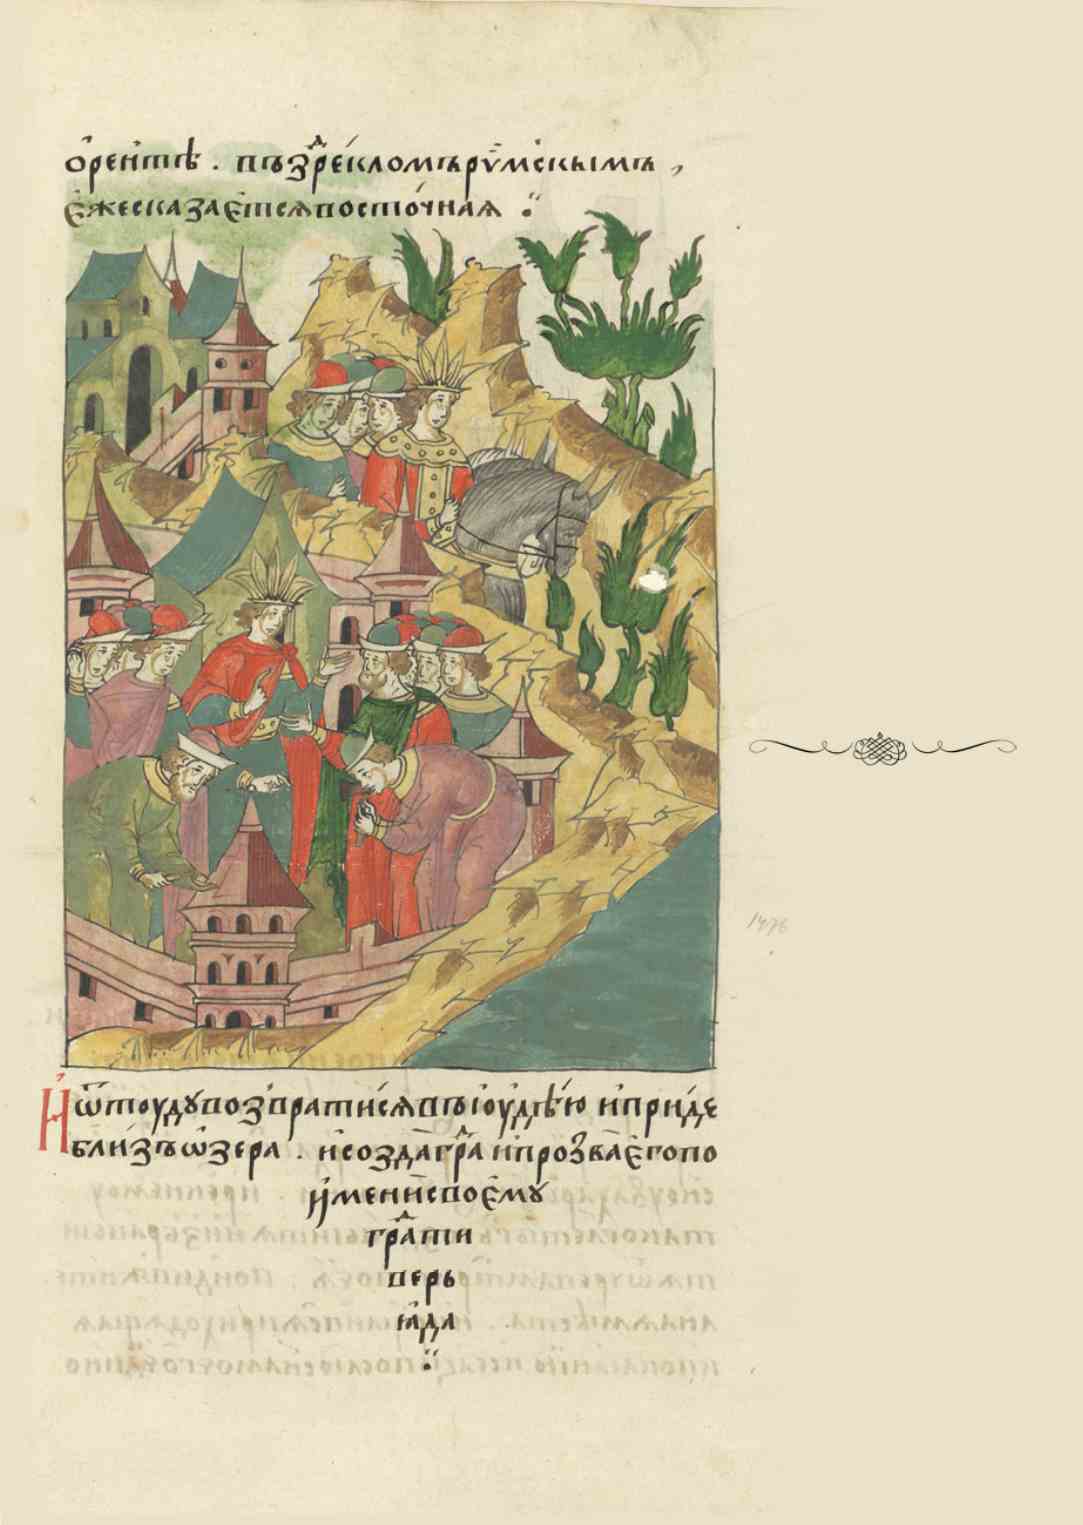 о҆рент̾ѣ . въз̾реⷱ҇клом̾ъ рѵ́мскымъ ,
є҆же сказаєтсѧ восто́чнаѧ ⁘
И҆ ѿтоуду возвратисѧ въ іоудѣ́ю и҆ приде
близъ ѡ҆зера . и҆ созда граⷣ и҆ прозва є҆го по
и҆мени своємꙋ
граⷣ ти
верь
ꙗда
⁘
1476